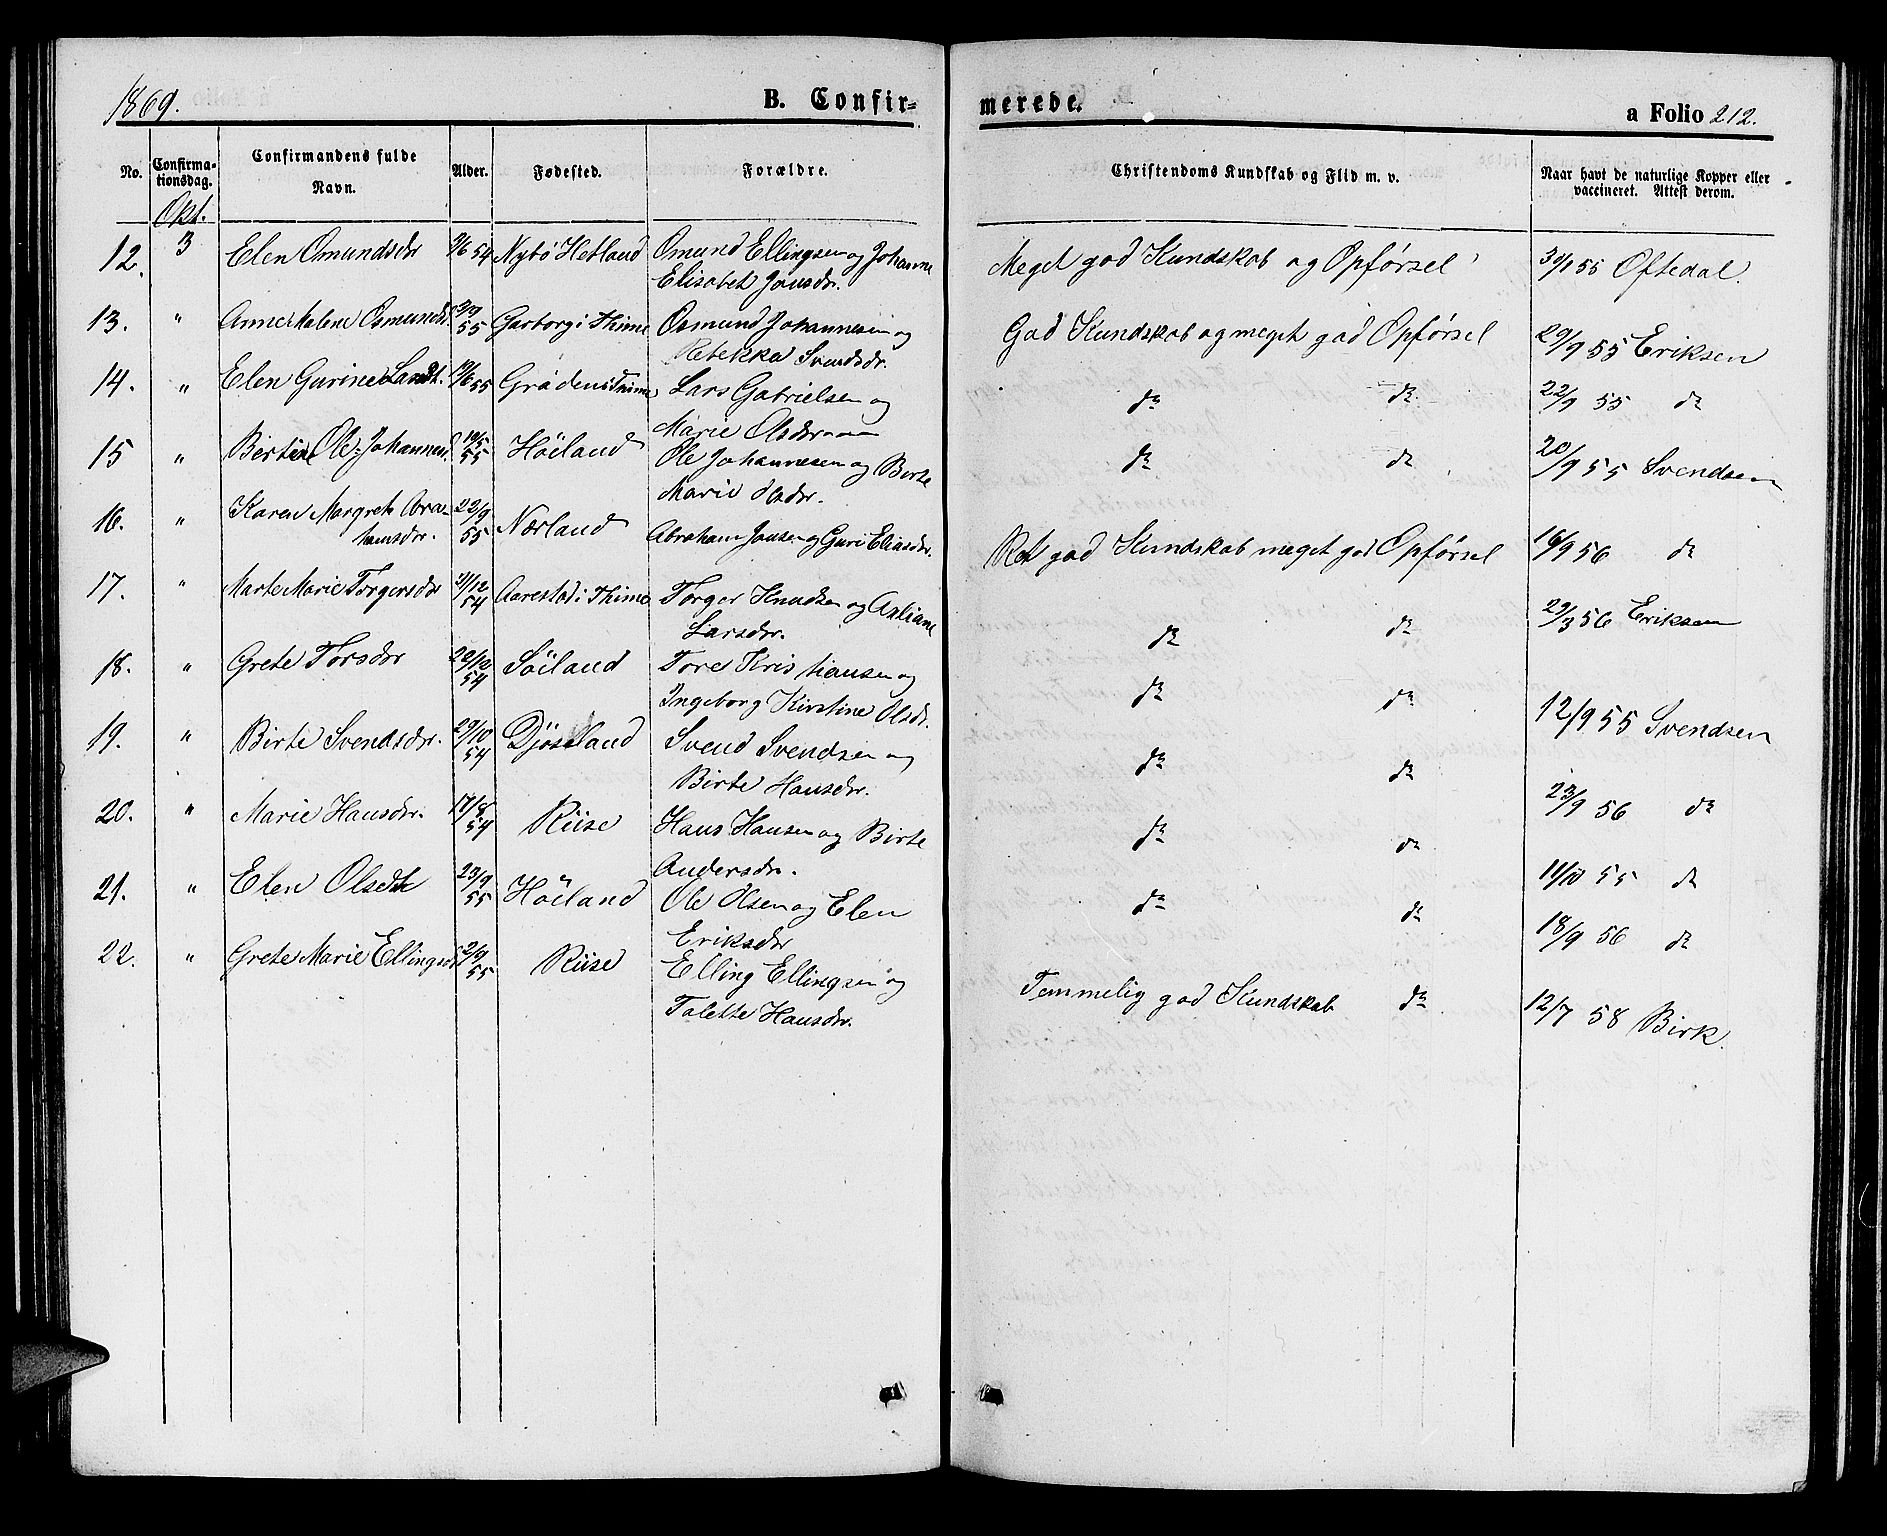 1869. B. Confir=
merede. a Folio 212.
No. Confirma=tionsdag. Confirmandens fulde Navn. Alder. Fødested. Forældre. Christendoms Kundskab og Flid m. v. Naar havt de naturlige Kopper eller vaccineret. Attest derom.
Okt.
12. 3 Elen Omundsdr 54 Nybø Hetland Omund Ellingsen og Johanne Meget god Kundskab og Opførsel 55 Oftedal.
Elisabet Jonsdr.
13. " Anne Malene Osmundsd. 55 Garborg i Thime Osmund Johannesen og God Kundskab og meget god Opførsel 29/9 55 Eriksen
Rebekka Svendsdr.
14. " Elen Gurine Larsdt. 55 Gröden i Thime Lars Gabrielsen og do do 22/9 55 do
Marie Olsdr
15 " Bertine Ole: Johannesd. 19/5 55 Höiland Ole Johannesen og Berte do do 20/9 55 Svendsen
Marie Olsdr.
16. " Karen Margrete Abra= 22/9 55 Nærland Abraham Jonsen og Guri Eliasdr. Ret god Kundskab meget god Opførsel 16/9 56 do
hamsdr.
17. " Marte Marie Torgersdr 31/12 54 Aarestad i Thime Torger Knudsen og Asliane do do 29/3 56 Eriksen
Larsdr.
18. " Grete Torsdr 54 Söiland Tore Kristiansen og do do 12/9 55 Svendsen
Ingeborg Kirstine Olsdr.
19. " Birte Svendsdr. 29/10 54 Djösland Svend Svendsen og do do 23/9 56 do
Birte Hansdr.
20. " Marie Hansdr. 17/8 54 Riise Hans Hansen og Birte do do 11/10 55 do
Andersdr.
21. " Elen Olsdt 23/9 55 Höiland Ole Olsen og Elen do do 18/9 56 do
Eriksdr
22. " Grete Marie Ellingsd 2/9 55 Riise Elling Ellingsen og Temmelig god Kundskab do 12/7 58 Birk.
Talette Hansdr.